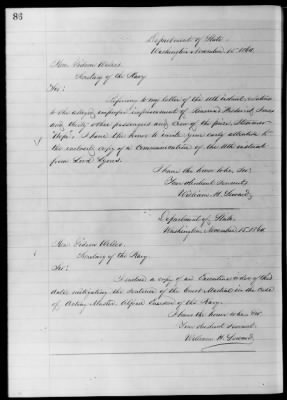 86
Department of State
Washington November 15th 1864.
Hon. Gideon Welles.
Secretary of the Navy
Sir:
Referring to my letter of the 10th instant, relative
to the alleged improper imprisonment of Frederick Jones
and thirty other passengers and crew of the prize Steamer
"Hope", I have the honor to invite your early attention to
the enclosed copy of a Communication of the 11th instant
from Lord Lyons.
I have the honor to be, Sir:
Your obedient servant
William H. Seward.
Department of State.
Washington, November 15, 1864
Hon. Gideon Welles.
Secretary of the Navy.
Sir:
I enclose a copy of an Executive order of this
date mitigating the sentence of the Court Martial in the case
of Acting Master Alfred of the Navy.
I have the honor to be, Sir:
Your obedient servant.
William H. Seward.